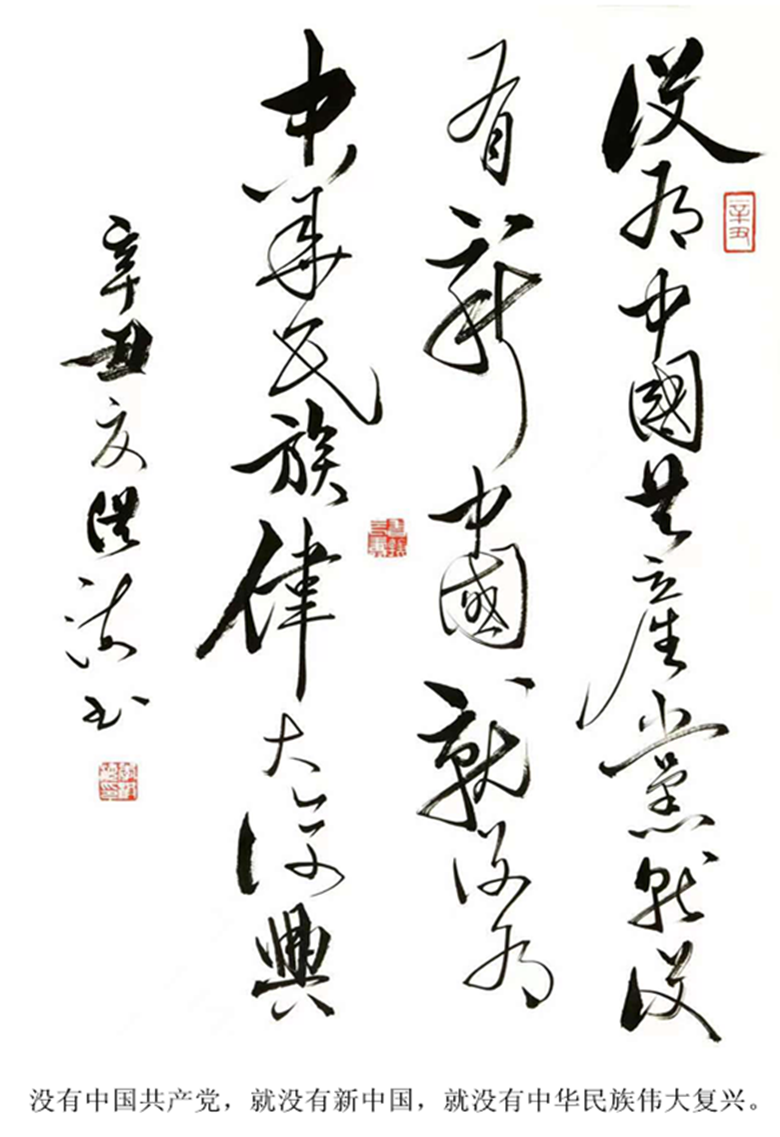 没有中國共產黨就没
有新中國就没有
中華民族偉大復興
辛丑
辛丑夏洪涛书
没有中国共产党，就没有新中国，就没有中华民族伟大复兴。